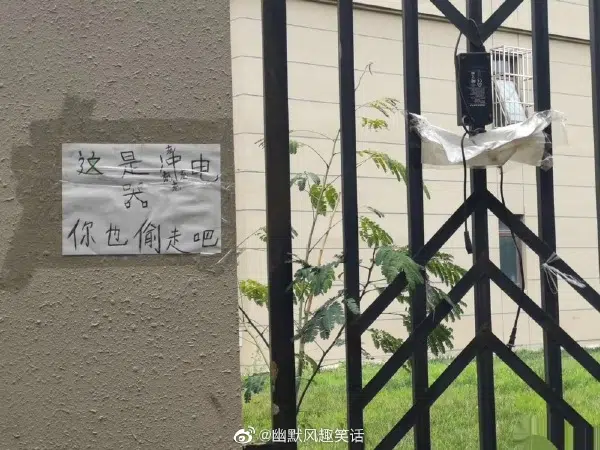 这是电
器
你也偷走吧
@幽默风趣笑话